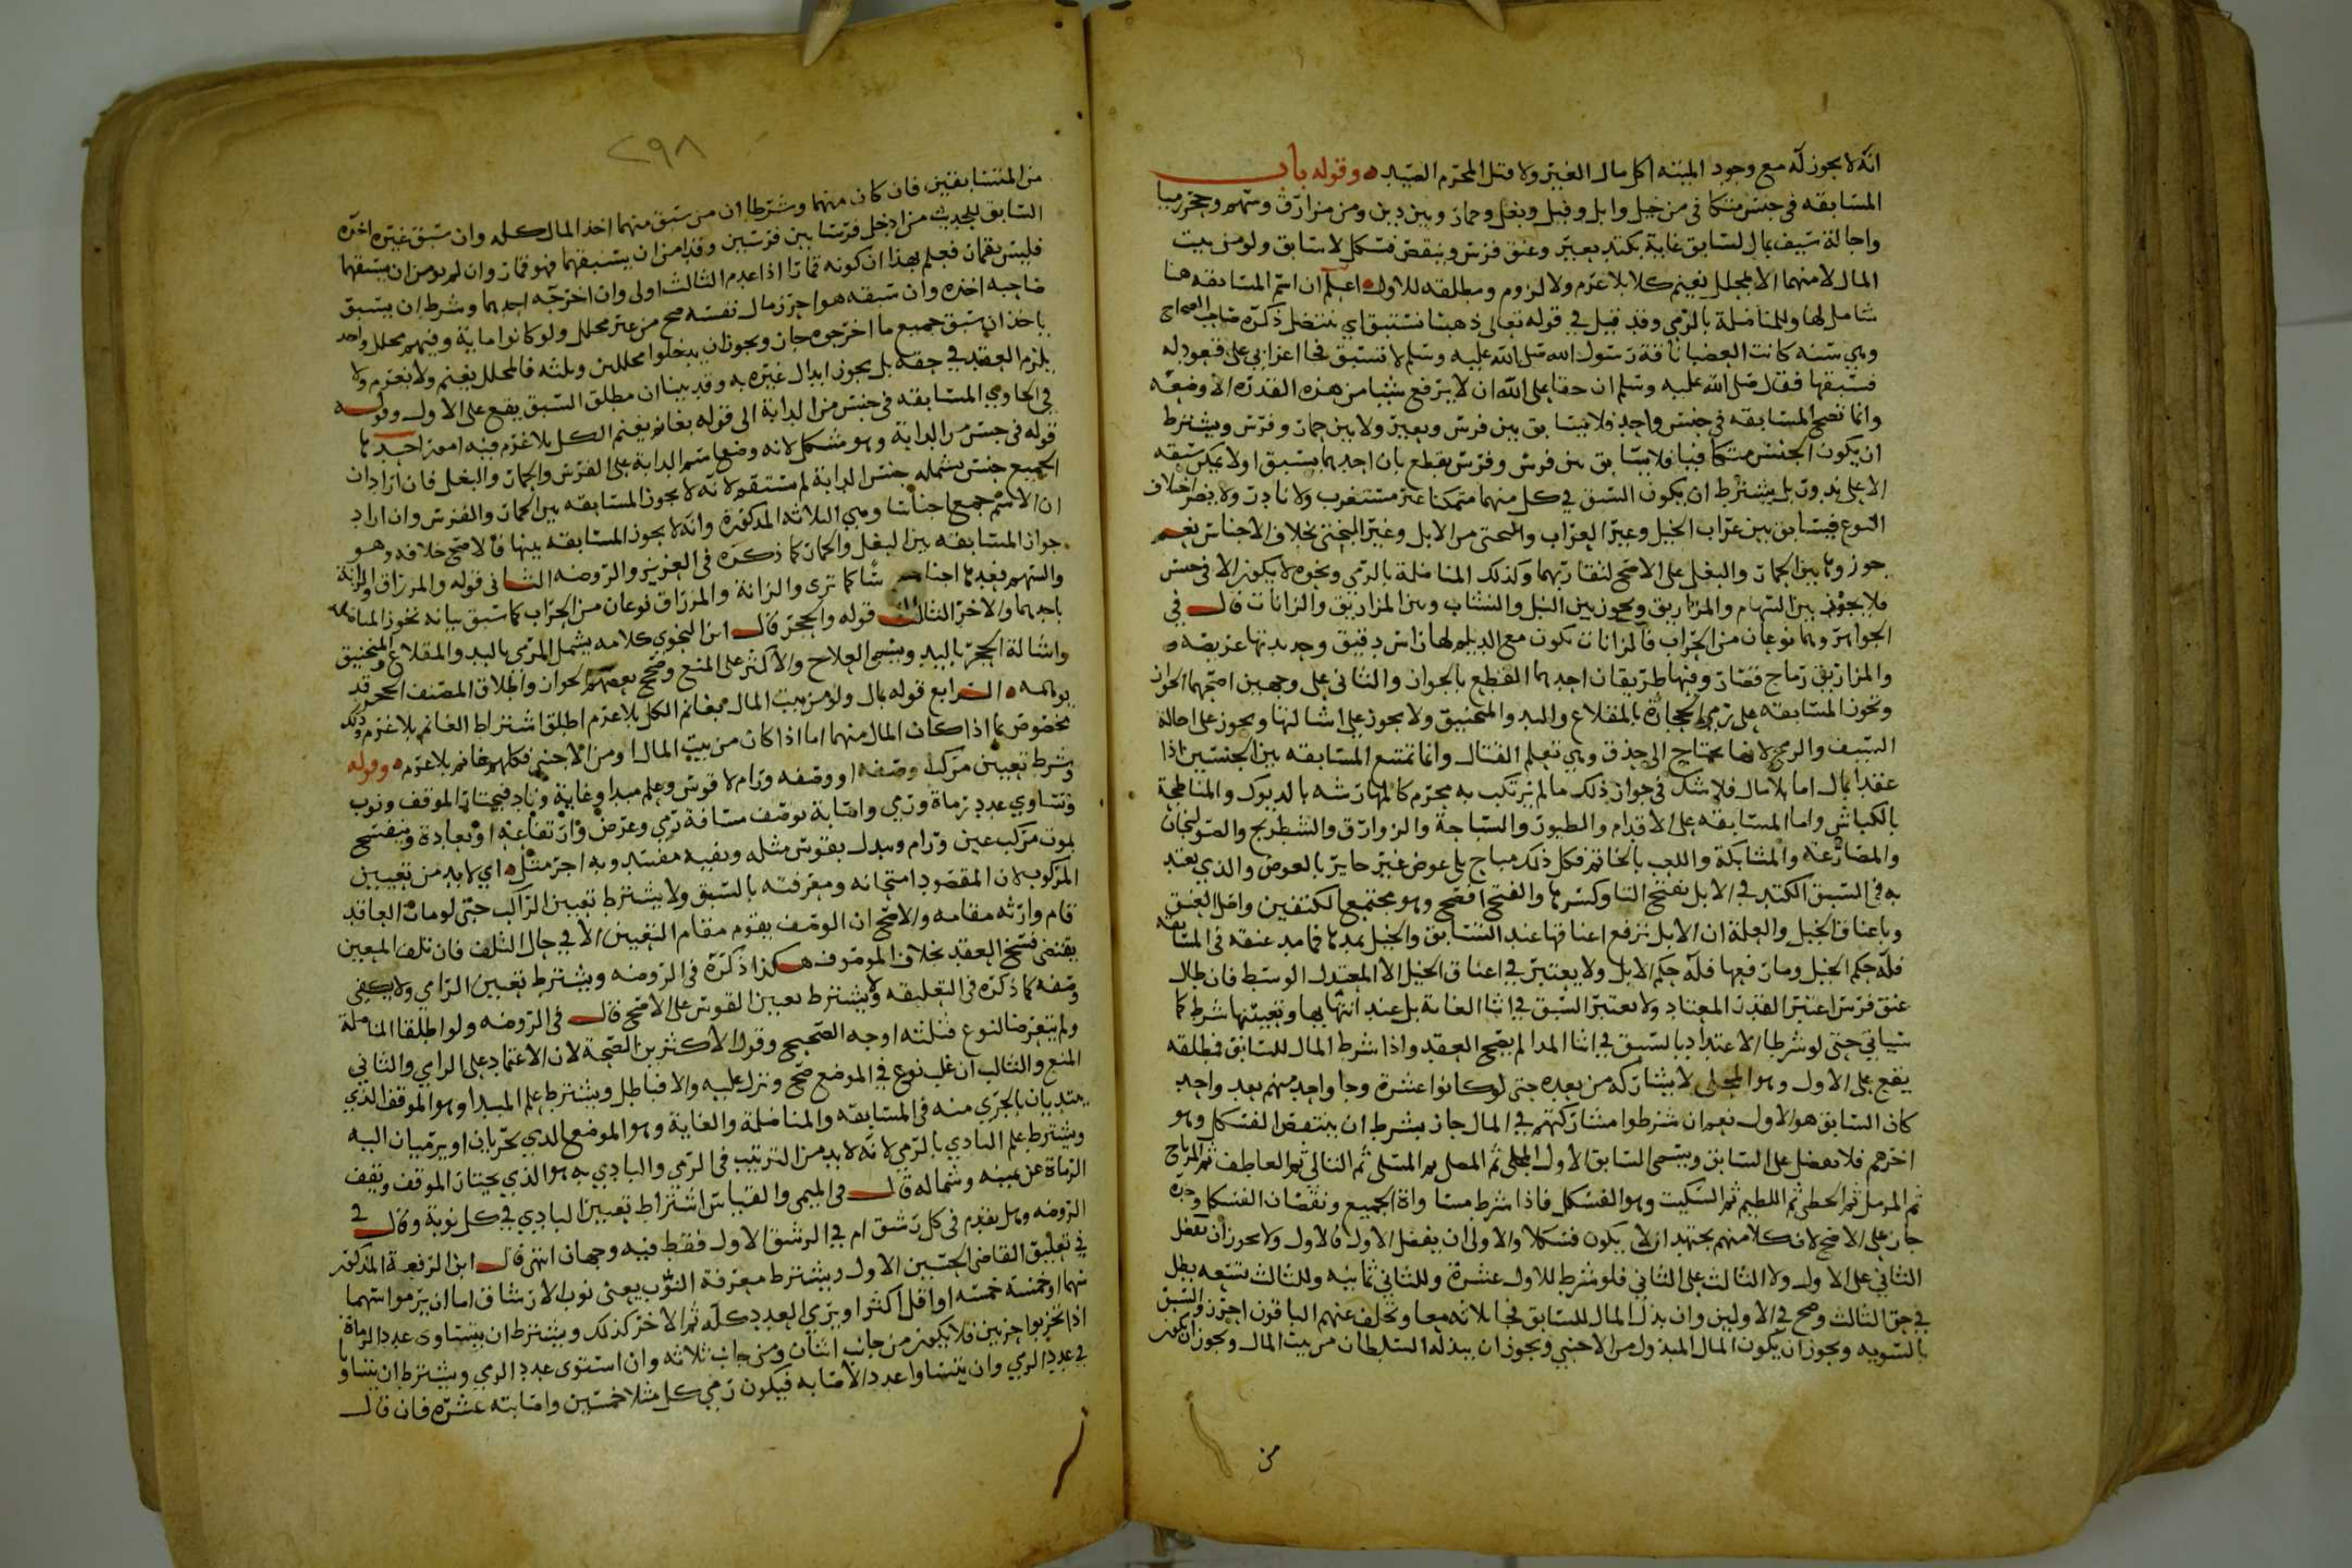 انه لا يجوز له مع وجود الميته اكل مال الغير ولا قتل المحرم الصيد وقوله باب
المسابقه في جنس متكافي من خيل وابل وفيل وبغل وحمار وبين دين ومن مزارق وسهم وحجر رميا
واجالة سيف بمال لسابق غاية بكتد بعير وعنق فرس وينقص فسكل لا سابق ولو من بيت
المال لا منهما الا لمحلل يغنم كلا بلا غرم ولا لزوم ومطلقه للاول اعلم ان اسم المسابقه هنا
شامل لها وللمناضلة بالرمي وقد قيل في قوله تعالى ذهبنا نستبق اي ننتضل ذكره صاحب الصحاح
وهي سنه كانت العضبا ناقة رسول الله صلى الله عليه وسلم لا تستبق فجا اعرابي على قعود له
فسبقها فقال صلى الله عليه وسلم ان حقا على الله ان لا يرفع شيا من هذه القدره الا وضعه
وانما تصح المسابقه في جنس واحد فلا يتسابق بين فرس وبعير ولا بين حمار وفرس ويشترط
ان يكون الجنس متكافيا فلا يتسابق بين فرس وفرس يقطع بان احدهما يسبق او لا يمكن سبقه
الا على ندور بل يشترط ان يكون السبق في كل منهما ممكنا غير مستغرب ولا نادر ولا يضر اختلاف
النوع فيتسابق بين عراب الخيل وغير العراب والبختي من الابل وغير البختي بخلاف الاجناس نعم
جوزوها بين الحمار والبغل على الاصح لتقاربهما وكذلك المناضلة بالرمي ونحوه لا يكون الا في جنس
فلا يجوز بين السهام والمزاريق ويجوز بين النبل والنشاب وبين المزاريق والزانات قال في
الجواهر وهما نوعان من الحراب فالزانات تكون مع الديلم لها راس دقيق وحديدتها عريضه
والمزاريق رماح قصار وفيها طريقان احدهما القطع بالجواز والثاني على وجهين اصحهما الجواز
وتجوز المسابقه على رمي الحجارة بالمقلاع واليد والمنجنيق ولا يجوز على اشالتها ويجوز على اجالة
السيف والرمح لانها تحتاج الى حذق وهي تعلم القتال وانما تمتنع المسابقه بين الجنسين اذا
عقد بمال اما بلا مال فلا شك في جواز ذلك ما لم يرتكب به محرم كالمهارشه بالديوك والمناطحة
بالكباش واما المسابقه على الاقدام والطيور والسباحة والزوارق والشطرنج والصولجان
والمصارعه والمشابكة واللعب بالخاتم فكل ذلك مباح بلا عوض غير جايز بالعوض والذي يعتد
به في السبق الكتد في الابل بفتح التا وكسرها والفتح افصح وهو مجتمع الكتفين واصل العنق
وباعناق الخيل والعلة ان الابل ترفع اعناقها عند التسابق والخيل تمدها فما مد عنقه في المسابقه
فله حكم الخيل وما رفعها فله حكم الابل ولا يعتبر في اعناق الخيل الا المعتدل الوسط فان طال
عنق فرس اعتبر القدر المعتاد ولا يعتبر السبق في اثنا الغاية بل عند انتهايها وتعيينها شرط كما
سياتي حتى لو شرطا الاعتداد بالسبق في اثنا المدا لم يصح العقد واذا شرط المال للسابق فمطلقه
يقع على الاول وهو المجلى لا يشاركه من بعده حتى لو كانوا عشرة وجا واحد منهم بعد واحد
كان السابق هو الاول نعم ان شرطوا مشاركتهم في المال جاز بشرط ان ينتقص الفسكل وهو
اخرهم فلا يفضل على السابق ويسمى السابق الاول المجلى ثم المصلى ثم المسلى ثم التالي ثم العاطف ثم المرتاح
ثم المرمل ثم الحظى ثم اللطيم ثم السكيت وهو الفسكل فاذا شرط مساواة الجميع ونقصان الفسكل وحده
جاز على الاصح لان كلا منهم يجتهد ان لا يكون فسكلا والاولى ان يفضل الاول فالاول ولا يجوز ان يفضل
الثاني على الاول ولا الثالث على الثاني فلو شرط للاول عشرة وللثاني ثمانيه وللثالث تسعه بطل
في حق الثالث وصح في الاولين وان بذل المال للسابق فجا ثلاثه معا وتخلف عنهم الباقون احرزوا السبق
بالسويه ويجوز ان يكون المال المبذول من الاجنبي ويجوز ان يبذله السلطان من بيت المال ويجوز ان يكون
من
٢٩٨
من المتسابقين فان كان منهما وشرطا ان من سبق منهما اخذ المال كله وان سبق غيره اخره
السابق للحديث من ادخل فرسا بين فرسين وقد امن ان يسبقهما فهو قمار وان لم يومن ان يسبقهما
فليس بقمار فعلم بهذا ان كونه قمارا اذا عدم الثالث اولى وان اخرجه احدهما وشرط ان يسبق
صاحبه اخذه وان سبقه هو احرز مال نفسه صح من غير محلل ولو كانوا ماية وفيهم محلل واحد
ياخذ ان سبق جميع ما اخرجوه جاز ويجوز ان يدخلوا محللين وثلثه فالمحلل يغنم ولا يغرم ولا
يلزم العقد في حقه بل يجوز ابدال غيره به وقد بينا ان مطلق السبق يقع على الاول وقوله
في الحاوي المسابقه في جنس من الدابة الى قوله بغانم يغنم الكل بلا غرم فيه امور احدها
قوله في جنس من الدابة وهو مشكل لانه وضع اسم الدابة على الفرس والحمار والبغل فان اراد ان
الجميع جنس يشمله جنس الدابة لم يستقم لانه لا يجوز المسابقه بين الحمار والفرس وان اراد
ان الاسم جمع اجناسا وهي الثلاثه المذكورة وانه لا يجوز المسابقه بينها فالاصح خلافه وهو
جواز المسابقه بين البغل والحمار كما ذكره في العزيز والروضه الثاني قوله والمزراق والزانة
والسهم بعدها اجناسا كما ترى والزانة والمزراق نوعان من الحراب كما سبق بيانه تجوز المناضله
باحدهما والاخر الثالث قوله والحجر قال ابن النحوي كلامه يشمل المرمي باليد والمقلاع والمنجنيق
واشالة الحجر باليد ويسمى العلاج والاكثر على المنع وصحح بعضهم الجواز واطلاق المصنف الحجر قد
يوهمه الرابع قوله بمال ولو من بيت المال فبغانم الكل بلا غرم اطلق اشتراط الغانم بلا غرم وذلك
مخصوص بما اذا كان المال منهما اما اذا كان من بيت المال او من الاجنبي فكلهم غانم بلا غرم وقوله
وشرط تعيين مركب وصفه او وصفه ورام لا قوس وعلم مبدا وغاية وباد فيختار الموقف ونوب
وتساوي عدد رماة ورمي واصابة بوصف مسافة رمي وعرض وارتفاعه او بعادة وينفسخ
بموت مركب عين ورام ويبدل بقوس مثله ونفيه مفسد وبه اجر مثل اي لا بد من تعيين
المركوب لان المقصود امتحانه ومعرفته بالسبق ولا يشترط تعيين الراكب حتى لو مات العاقد
قام وارثه مقامه والاصح ان الوصف يقوم مقام التعيين الا في حال التلف فان تلف المعين
يقتضي فسخ العقد بخلاف الموصوف هكذا ذكره في الروضه ويشترط تعيين الرامي ولا يكفي
وصفه كما ذكره في التعليقه ولا يشترط تعيين القوس على الاصح قال في الروضه ولو اطلقا المناضلة
ولم يتعرضا لنوع فثلثه اوجه الصحيح وقول الاكثرين الصحة لان الاعتماد على الرامي والثاني
المنع والثالث ان غلب نوع في الموضع صح ونزل عليه والا فباطل ويشترط علم المبدا وهو الموقف الذي
يبتديان بالجري منه في المسابقه والمناضلة والغاية وهو الموضع الذي يجريان او يرميان اليه
ويشترط علم البادي بالرمي لانه لا بد من الترتيب في الرمي والبادي به هو الذي يختار الموقف وتقف
الرماة عن يمينه وشماله قال في الميمي والقياس اشتراط تعيين البادي في كل نوبة وقال في
الروضه وهل يقدم في كل رشق ام في الرشق الاول فقط فيه وجهان انتهى قال ابن الرفعة المذكور
في تعليق القاضي الحسين الاول ويشترط معرفة النوب يعني نوب الارشاق اما ان يرموا سهما
سهما او خمسة خمسه او اقل او اكثر او يرمي العدد كله ثم الاخر كذلك ويشترط ان يتساوى عدد الرماة
اذا تحزبوا حزبين فلا يكون من جانب اثنان ومن جانب ثلاثه وان استوى عدد الرمي ويشترط ان يتساويا
في عدد الرمي وان يتساوا عدد الاصابه فيكون رمي كل مثلا خمسين واصابته عشره فان قال